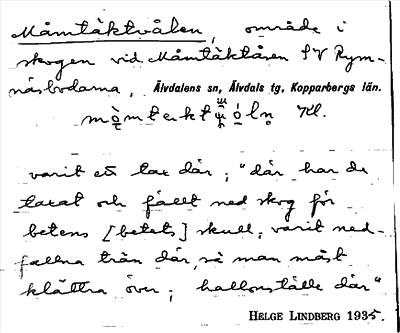 Måmtäktvålen, område i
skogen vid Måmtäktåsen SV Rym-
näsbodarna, Älvdalens sn, Älvdals tg, Kopparbergs län.
Kl.
varit en tax där; "där har de
taxat och fällt ned skog för
betens [betets] skull, varit ned-
fallna trän där, så man måst
klättra över; hallonställe där"
HELGE LINDBERG 1935.